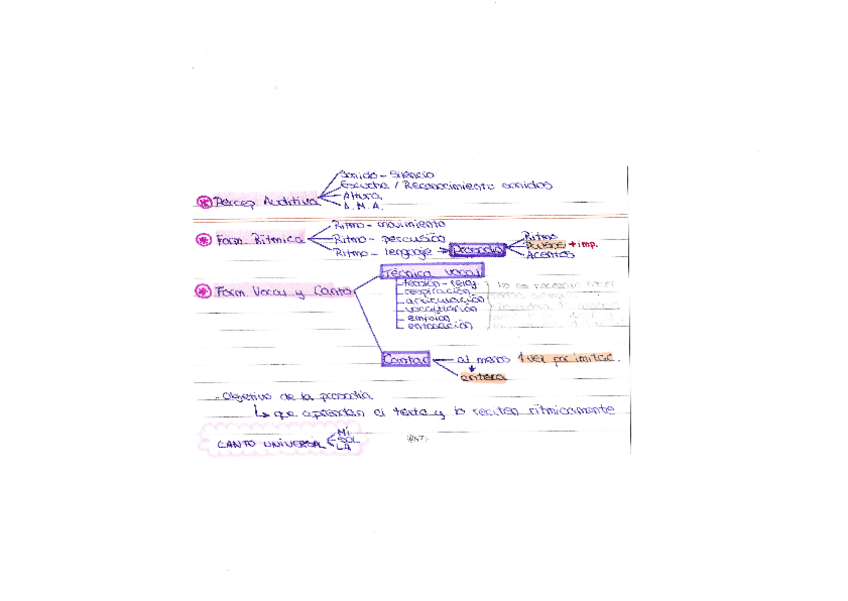 Sonido - Silencio
Escucha / Reconocimiento sonidos
* Percep Auditiva
Altura
D. M. A.
Ritmo - movimiento
* Form. Rítmica
Ritmo - percusión
Ritmo - lenguaje → Prosodia
Ritmo
Pulsos → imp.
Acentos
Técnica vocal
* Form Vocal y Canto
tensión - relaj
respiración
articulación
vocalización
emisión
entonación
no es necesario hacer
Cantar — al menos 1 vez por imitac.
entera
- Objetivo de la prosodia.
↳ que aprendan el texto y lo reciten rítmicamente
CANTO UNIVERSAL
Mi
SOL
LA